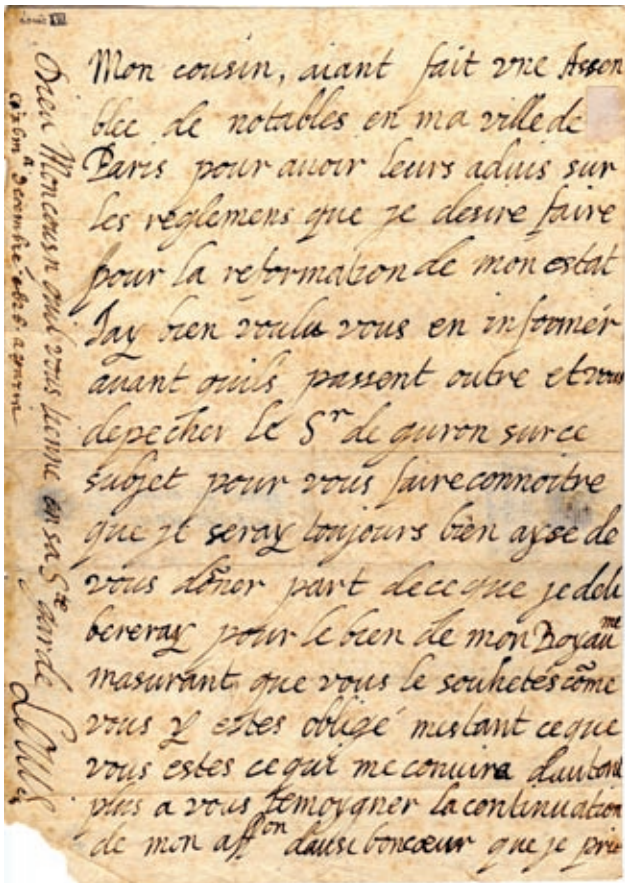 Mon cousin, aiant fait vne Assen
blee de notables en ma ville de
Paris pour auoir leurs aduis sur
les reglemens que je desire faire
pour la reformation de mon estat
Jay bien voulu vous en informér
auant quils passent outre et vous
depecher le Sr de guron sur ce
subjet pour vous faire connoitre
que je seray toujours bien ayse de
vous dõner part de ce que je deli
bereray pour le bien de mon Royaume
masurant que vous le souhetés cõme
vous y estes obligé mestant ce que
vous estes ce qui me conuira dautant
plus a vous temoygner la continuation
de mon affon dausi bon cœur que je prie
Dieu Mon cousin quil vous tienne en sa Ste garde
Louis
ce decembre 1626 a
Louis XIII